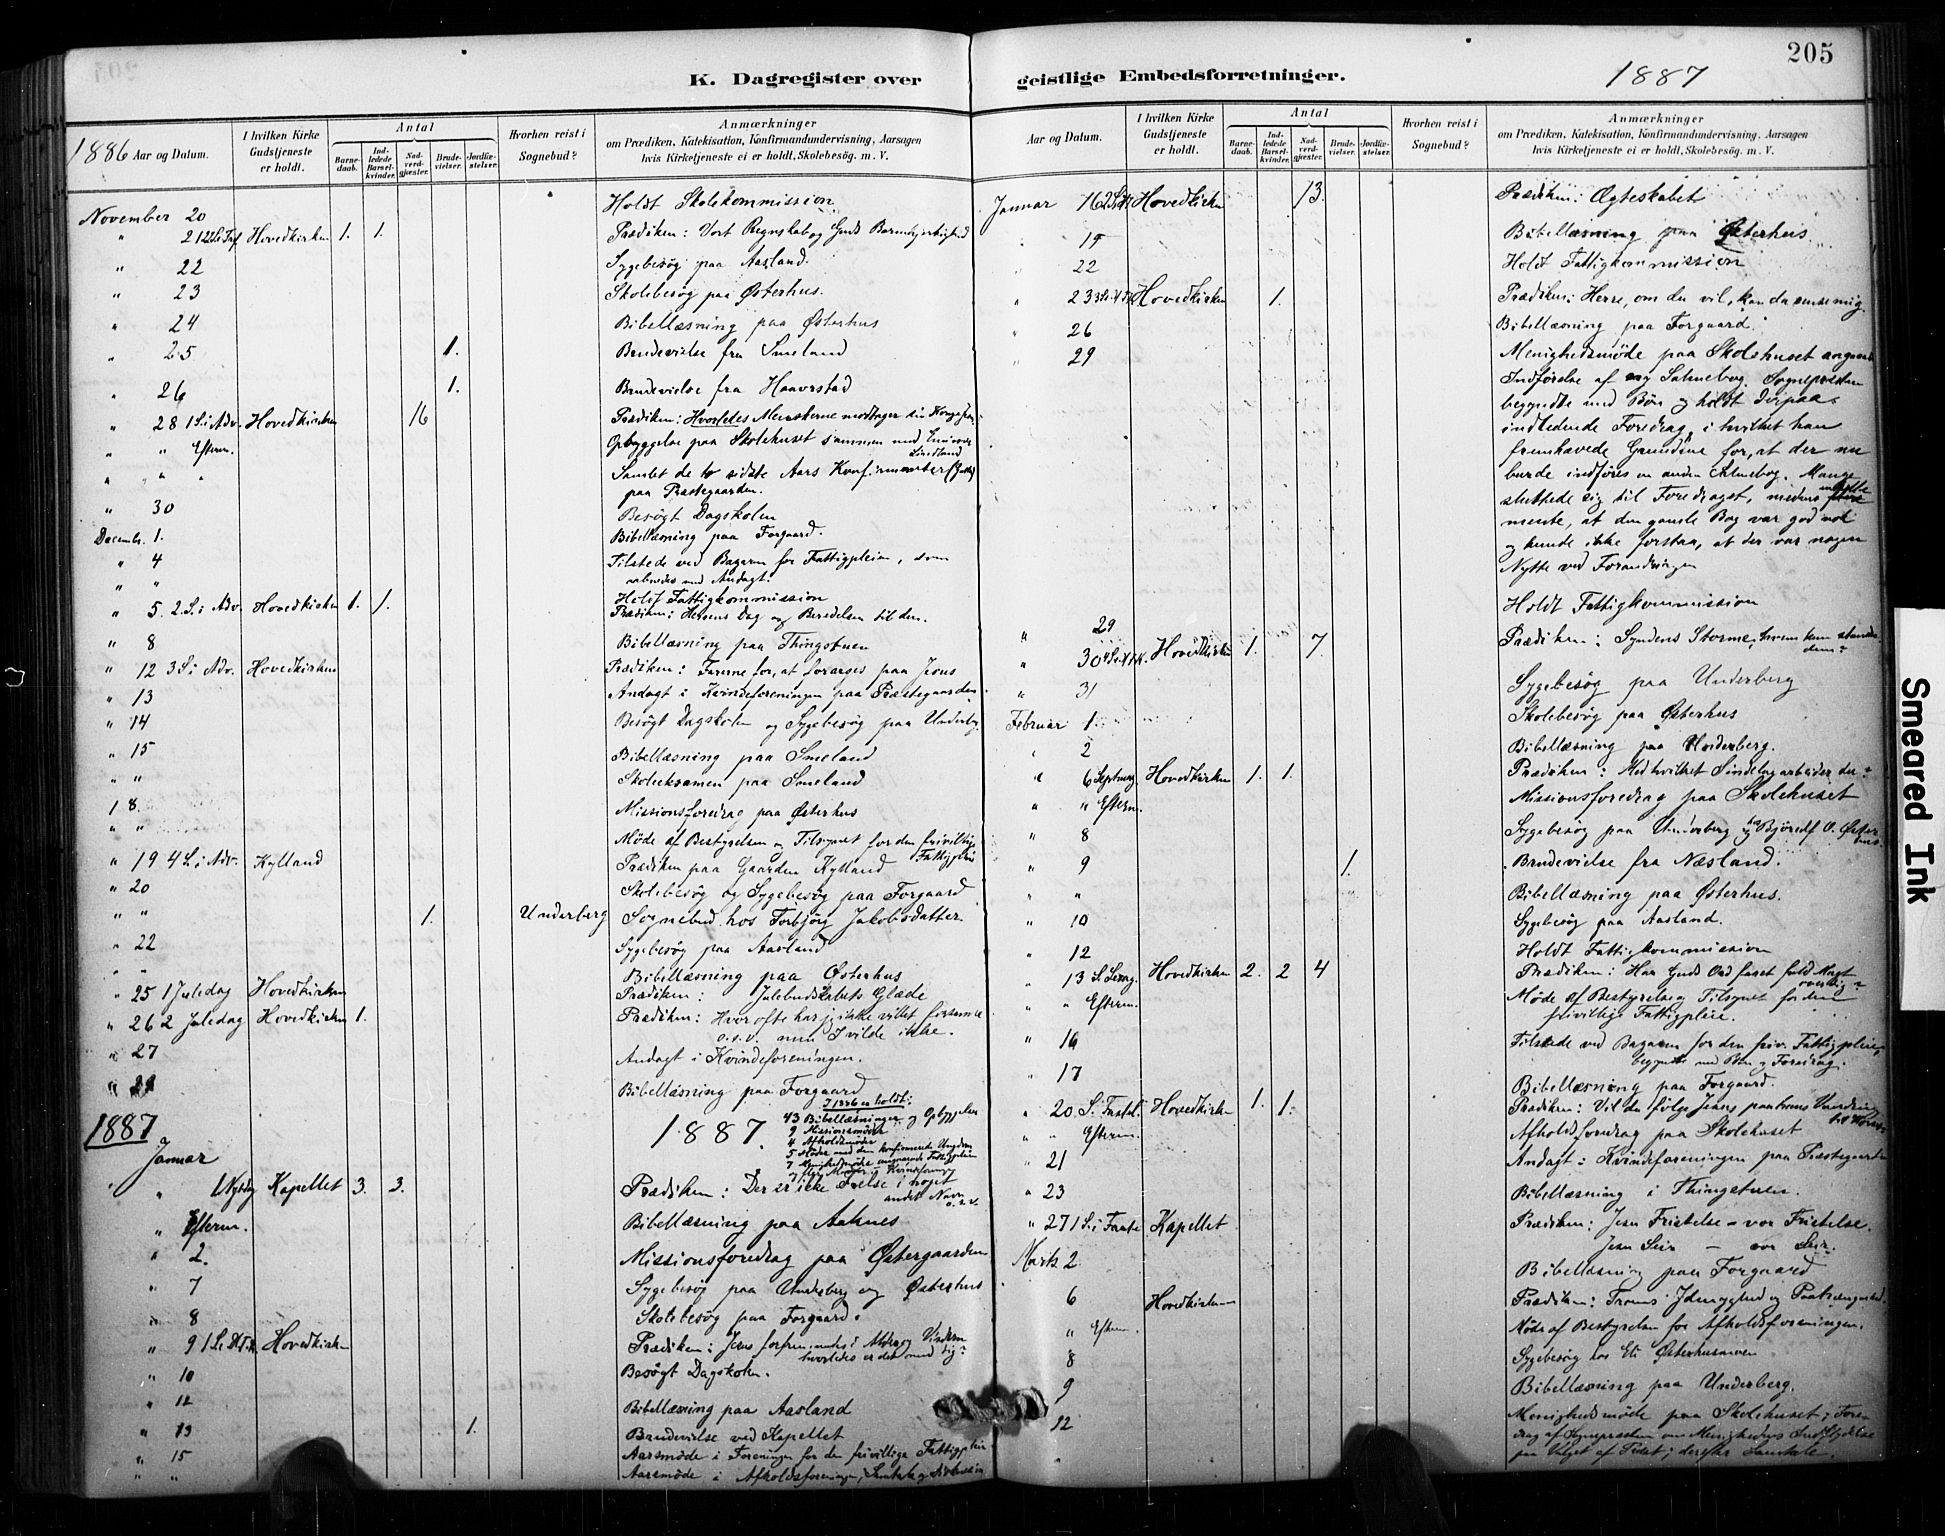 205
K. Dagregister over geistlige Embedsforretninger.
1887
1886 Aar og Datum.
I hvilken Kirke Gudstjeneste er holdt.
Antal
Barnedaab.
Indledede Barselkvinder.
Nadverdgjæster.
Brudevielser.
Jordfæstelser.
Hvorhen reist i Sognebud?
Anmærkninger
om Prædiken, Katekisation, Konfirmandundervisning, Aarsagen
hvis Kirketjeneste ei er holdt, Skolebesøg. m. V.
November 20 Holdt Skolekommission
" 21 22 S.e.Tref. Hovedkirken 1. 1. Prædiken: Vort Regnskab og Guds Barmhjertighed
" 22 Sygebesøg paa Aasland.
" 23 Skolebesøg paa Østerhus.
" 24 Bibellæsning paa Østerhus
" 25 1. Brudevielse fra Smeland
" 26 1. Brudevielse fra Haavrstad
" 28 1 S. i Adv. Hovedkirken 16 Prædiken: Hvorledes Menneskerne modtager sin Konge
" " Efterm. Opbyggelse paa Skolehuset sammen med Lindland
" " " Samlet de to sidste Aars Konfirmanter
paa Præstegaarden.
" 30 Besøgt Dagskolen
Decembr. 1. Bibellæsning paa Forgaard.
" 4 Tilstede ved Bazaren for Fattigpleien, som
aabnedes med Andagt.
" " Holdt Fattigkommission
" 5. 2. S. i Adv. Hovedkirken 1. 1. Prædiken: Herrens Dag og Beredelsen til den.
" 8 Bibellæsning paa Thingstuen
" 12 3 S. i Adv. Hovedkirken Prædiken: Farerne for, at forarges paa Jesus
" 13 Andagt i Kvindeforeningen paa Præstegaarden.
" 14 Besøgt Dagskolen og Sygebesøg paa Underbg.
" 15 Bibellæsning paa Smeland
" " Skoleeksamen paa Smeland
18. Missionsforedrag paa Østerhus
" " Møde af Bestyrelsen og Tilsynet for den frivillige
Fattigpleie
" 19 4 S. i Adv. Kylland Prædiken paa Gaarden Kylland
" 20 Skolebesøg og Sygebesøg paa Forgaard
" " 1. Underberg Sognebud hos Torbjørg Jakobsdatter
" 22 Sygebesøg paa Aasland
" " Bibellæsning paa Østerhus
" 25 1 Juledag Hovedkirken Prædiken: Julebudskabets Glæde
" 26 2 Juledag Hovedkirken 1. Prædiken: Hvor ofte har jeg ikke villet forsamle
o.s.v. men I vilde ikke.
" 27 Andagt i Kvindeforeningen.
" 29 Bibellæsning paa Forgaard
1887
1887.
I 1886 er holdt:
43 Bibellæsninger og Opbyggelser
9 Missionsmøder
4 Afholdsmøder
5 Møder med den konfirmerede Ungdom
7 Menighedsmøder angaaende Fattigpleien
7 Møder i Kvindeforeng
Januar
" 1 Nytdg Kapellet 3. 3. Prædiken: Der er ikke Frelse i noget
andet Navn o.s.v.
" Efterm. Bibellæsning paa Aaknes
" 2. Missionsforedrag paa Østergaarden
" 7 Sygebesøg paa Underberg og Østerhus
" 8 Skolebesøg paa Forgaard.
" 9 1 S.e.H.3.K. Hovedkirken Prædiken: Jesus forfremmedes i Alder og Visdom
hvorledes er det med dig?
" 10 Besøgt Dagskolen.
" 12 Bibellæsning paa Aasland
" 13 1. Brudevielse ved Kapellet
" 15 Aarsmøde i Foreningen for den frivillige Fattigpleie
" " Aarsmøde i Afholdsforeningen, Samtale og
Aar og Datum.
I hvilken Kirke Gudstjeneste er holdt.
Antal
Barnedaab.
Indledede Barselkvinder.
Nadverdgjæster.
Brudevielser.
Jordfæstelser.
Hvorhen reist i Sognebud?
Anmærkninger
om Prædiken, Katekisation, Konfirmandundervisning, Aarsagen
hvis Kirketjeneste ei er holdt, Skolebesøg. m. V.
Januar 16 Hovedkirken 13. Prædiken: Ægteskabet
" 19 Bibellæsning paa Østerhus
" 22 Holdt Fattigkommission
" 23 Hovedkirken 1. Prædiken: Herre, om du vil, kan du rense mig.
" 26 Bibellæsning paa Forgaard.
" 29 Menighedsmøde paa Skolehuset angaaende
Indførelse af ny Salmebog. Sognepræsten
begyndte med Bøn og holdt derpaa
indledende Foredrag, i hvilket han
fremhævede Grundene for, at der nu
burde indføres en anden Salmebog. Mange
sluttede sig til Foredraget, medens enkelte
mente, at den gamle Bog var god nok
og kunde ikke forstaa, at der var nogen
Nytte ved Forandringen
" 29 Holdt Fattigkommission
" 30 Hovedkirken 1. 7. Prædiken: Syndens Storme, hvem kan standse
dem?
" 31 Sygebesøg paa Underberg
Februar 1. Skolebesøg paa Østerhus
" 2 Bibellæsning paa Underberg.
" 6 Septuag. Hovedkirken 1. 1. Prædiken: Med hvilket Sindelag arbeider du?
" " Efterm. Missionsforedrag paa Skolehuset
" 8 Sygebesøg paa Underberg og hos O. Østerhus.
" 9 1. Brudevielse fra Næsland.
" " Bibellæsning paa Østerhus.
" 10 Sygebesøg paa Aasland.
" 12 Holdt Fattigkommission
" 13 S. Sexag. Hovedkirken 2. 2 4 Prædiken: Har Guds Ord faaet fuld Magt
over dig?
" Efterm. Møde af Bestyrelse og Tilsynet for den
frivillige Fattigpleie.
" 16 Tilstede ved Bazaren for den friv. Fattigpleie,
begyndte med Bøn og Foredrag.
" 17 Bibellæsning paa Forgaard.
" 20 S. Fastel. Hovedkirken 1. 1. Prædiken: Vil du følge Jesus paa hans Vandring
til Korset
" " Efterm. Afholdsforedrag paa Skolehuset
" 21 Andagt i Kvindeforeningen paa Præstegaarden
" 23 Bibellæsning i Thingstuen.
" 27 1 S. i Faste Kapellet Prædiken: Jesu Fristelse – vor Fristelse.
Jesu Seir – vor Seir.
Marts 2 Bibellæsning paa Forgaard
6 Hovedkirken Prædiken: Troens Ydmyghed og Paatrængenhed.
" Efterm. Møde af Bestyrelsen for Afholdsforeningen.
8 Sygebesøg hos Eli Østerhusmoen
9 Bibellæsning paa Underberg.
12 Menighedsmøde paa Skolehuset; Foredrag
af Sognepræsten om Menighedens Indflydelse
paa Valget af Præst; derefter Samtale.
Smeared Ink